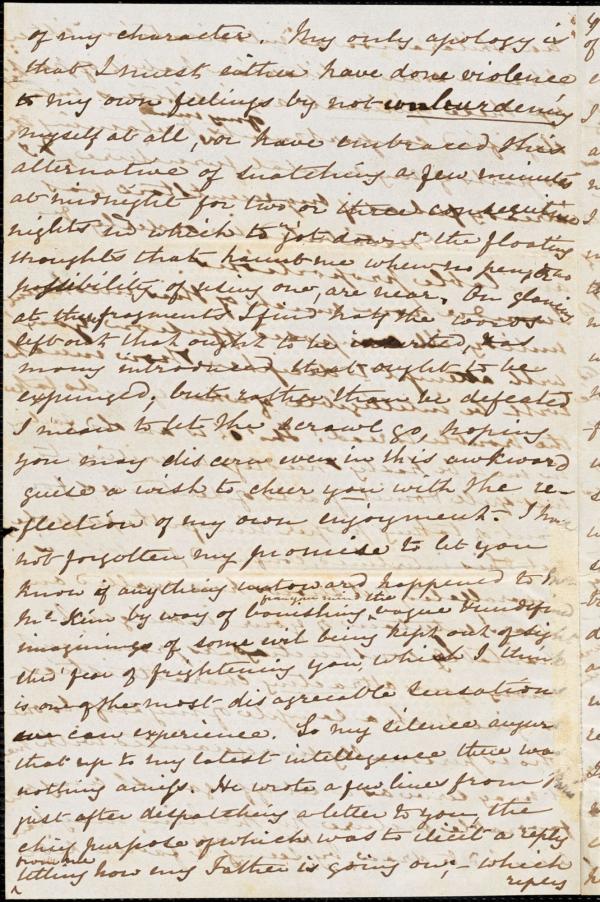 of my character. My only apology is
that I must either have done violence
to my own feelings by not unburdening
myself at all, or have embraced this
alternative of snatching a few minutes
at midnight for two or three consecutive
nights in which to jot down the floating
thoughts that haunt me when no pen, & no
possibility of using one, are near. On glancing
at the fragments I find half the words
left out that ought to be inserted, & as
many introduced that ought to be
expunged; but rather than be defeated
I mean to let the scrawl go, hoping
you may discern even in this awkward
guise a wish to cheer you with the re-
flection of my own enjoyment. I have
not forgotten my promise to let you
know if anything untoward happened to
Mr. Kim by way of banishing from your mind the vague
imaginings of some evil being kept out of sight
thro' fear of frightening you, which I think
is one of the most disagreeable sensations
can experience. So my silence augur
that up to my latest intelligence there was
nothing amiss. He wrote a few lines from
just after despatching a letter to you, the
chief purpose of which was to elicit a reply
from me
telling how my Father is going on; – which
reply